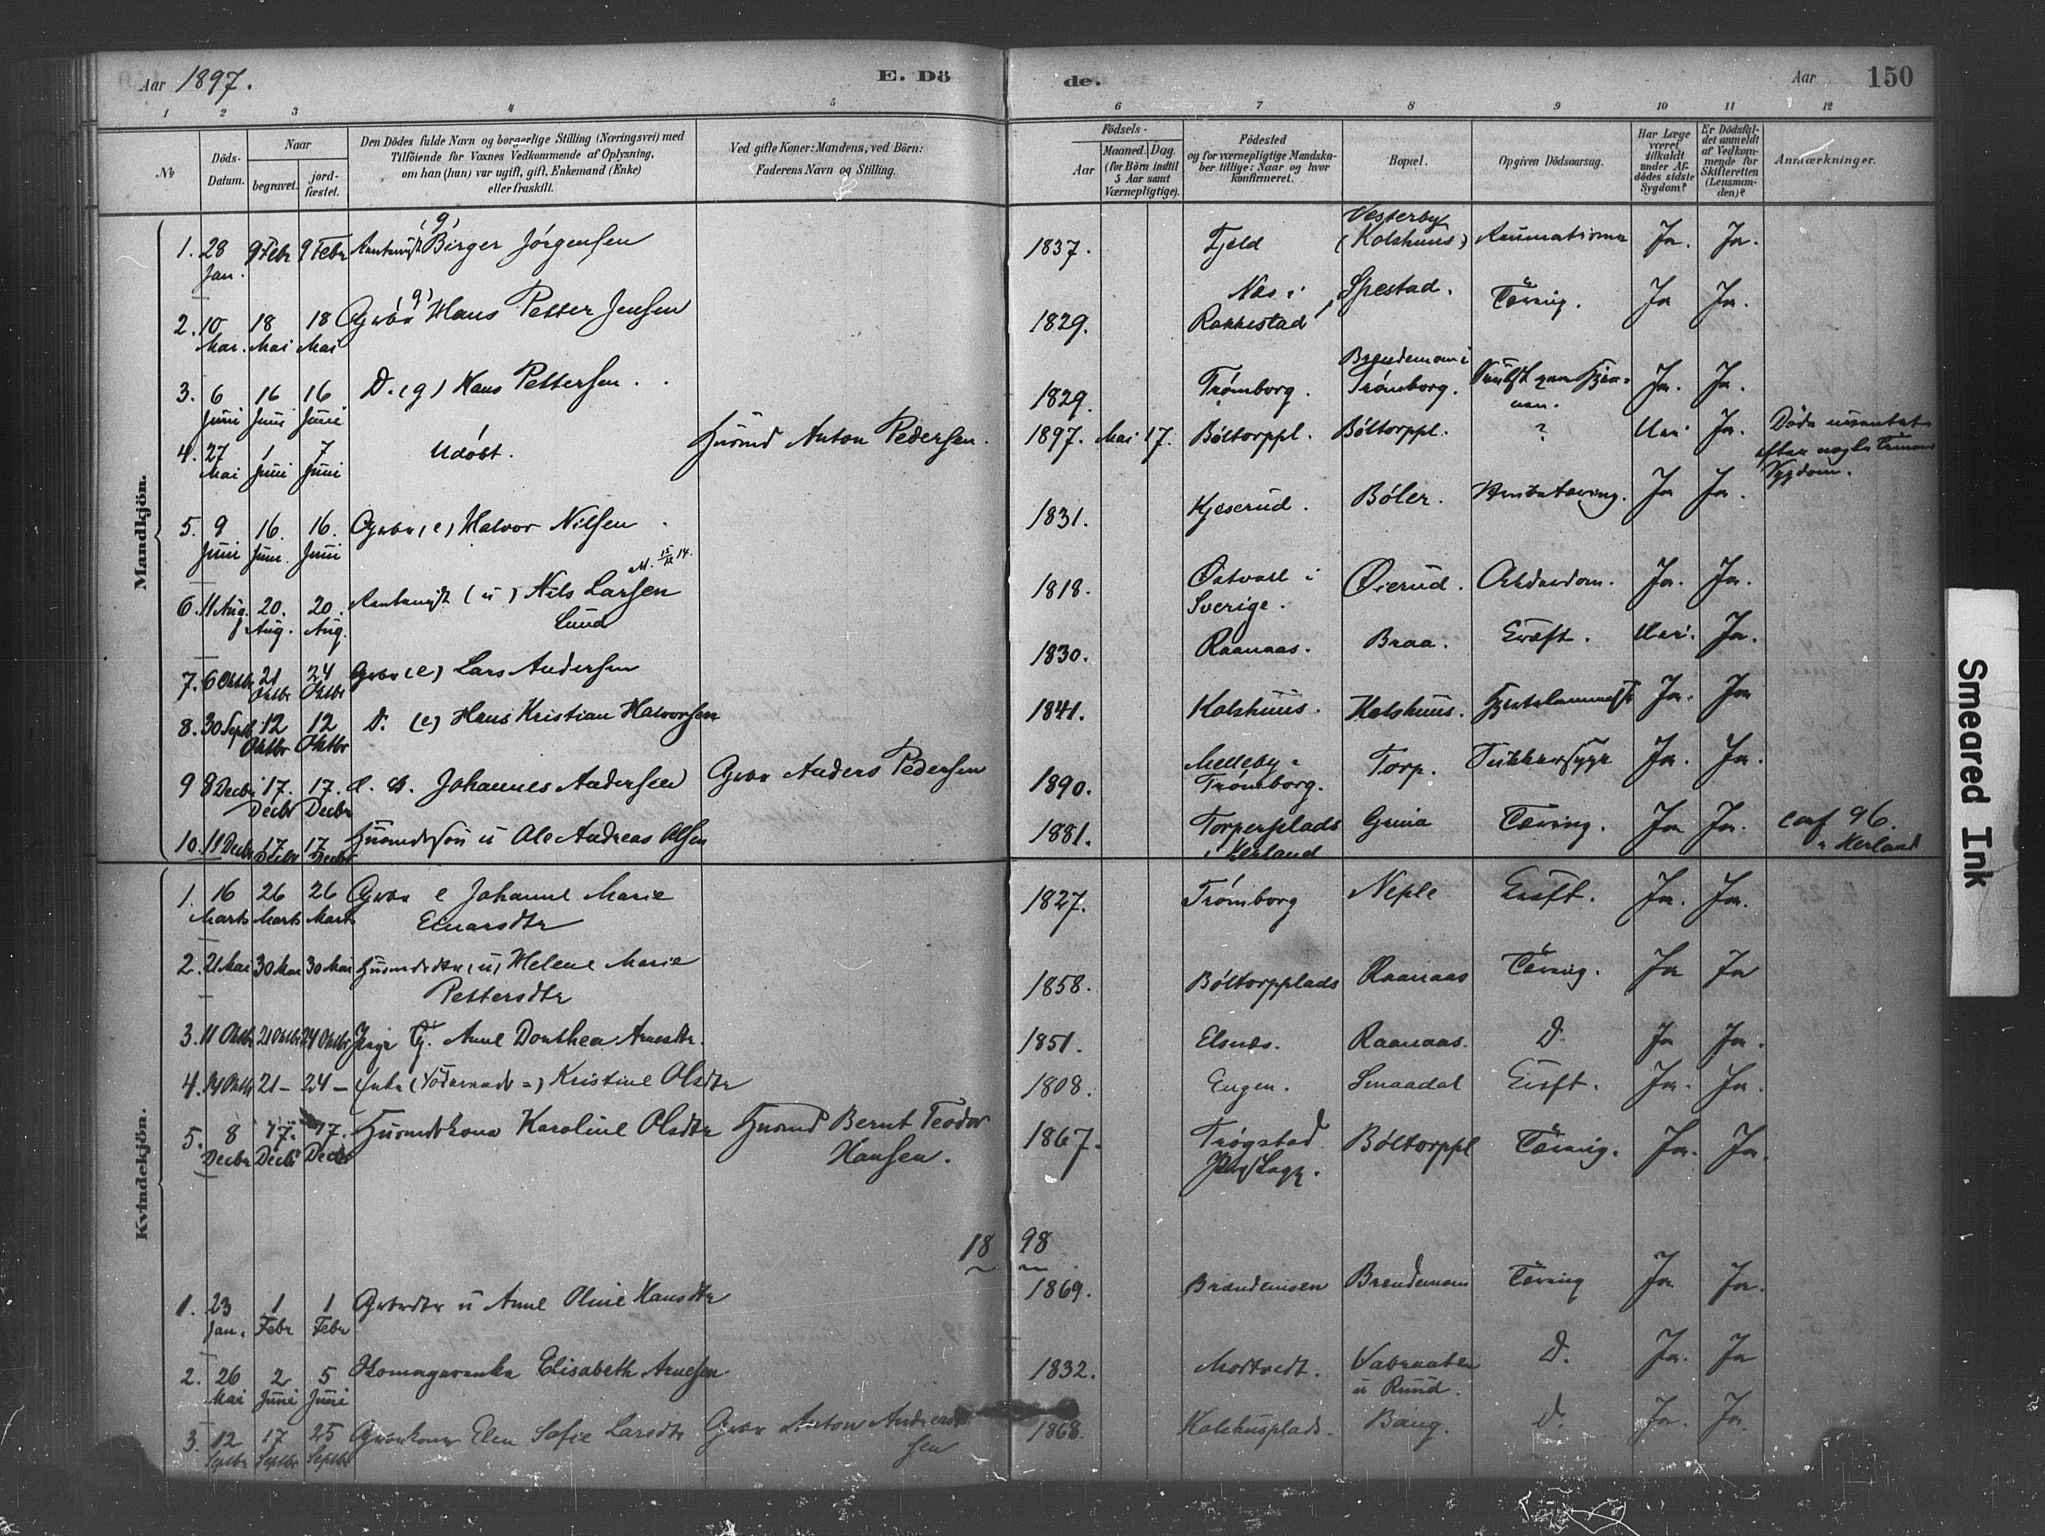 Aar 1897. E. Dö de. Aar 150
1 2 3 4 5 6 7 8 9 10 11 12
No
Döds-Datum.
Naar
begravet.
jord-fæstet.
Den Dödes fulde Navn og borgerlige Stilling (Næringsvei) med
Tilföiende for Voxnes Vedkommende af Oplysning,
om han (hun) var ugift, gift, Enkemand (Enke)
eller fraskilt.
Ved gifte Koner: Mandens, ved Börn:
Faderens Navn og Stilling.
Födsels-
Aar
Maaned. Dag.
(for Börn indtil
5 Aar samt
Værnepligtige).
Födested
og for værnepligtige Mandska-
ber tillige: Naar og hvor
konfirmeret.
Bopæl.
Opgiven Dödsaarsag.
Har Læge
været
tilkaldt
under Af-
dödes sidste
Sygdom?
Er Dödsfal-
det anmeldt
af Vedkom-
mende for
Skifteretten
(Lensman-
den)?
Anmærkninger.
Mandkjön.
1. 28 Jan. 9 Febr 9 Febr (g) Birger Jörgensen 1837. Fjeld Vesterby (Kolshuus) Ja. Ja.
2. 10 Mai. 18 Mai 18 Mai Grbr (g) Hans Petter Jensen 1829. Næs i Rakkestad Spestad. Tæring. Ja Ja.
3. 6 Juni 16 Juni 16 Juni D. (g) Hans Pettersen. 1829. Trømborg. Brendemoen i Trømborg. Ja. Ja.
4. 27 Mai 1 Juni 7 Juni Udøbt. Husmd Anton Pedersen. 1897. Mai 17. Bøltorppl. Bøltorppl. ? Nei Ja. Døde uventet efter nogle Timers Sygdom.
5. 9 Juni 16. Juni. 16. Juni Grbr (e) Halvor Nilsen 1831. Kjeserud. Bøler. Ja Ja.
6. 11 Aug. 20. Aug. 20. Aug. (u) Nils Larsen Lund 1818. Østvall i Sverige. Øierud. Alderdom. Ja. Ja.
7. 6 Oktbr 21 Oktbr 24 Oktbr Grbr (e) Lars Andersen 1830. Raanaas. Braa. Kræft. Nei. Ja.
8. 30 Septb 12 Oktbr 12 Oktbr D. (e) Hans Kristian Halvorsen 1841. Kolshuus. Kolshuus. Ja. Ja
9 8 Decbr 17. Decbr 17. Decbr Johannes Andersen Grbr Anders Pedersen 1890. Melleby i Trømborg. Torp. Sukkersyge Ja. Ja.
10. 11 Decbr 17 Decbr 17 Decbr Husmdssøn u Ole Andreas Olsen 1881. Torperplads i Herland Grina Tæring. Ja Ja. conf 96. i Herland
Kvindekjön.
1. 16 Marts 26 Marts 26 Marts Grbr e Johanne Marie Einarsdtr 1827. Trømborg Neple Kræft. Ja. Ja.
2. 21 Mai 30 Mai 30 Mai Husmdsdtr (u) Helene Marie Pettersdtr 1858. Bøltorpplads Raanaas Tæring. Ja Ja
3. 11 Oktbr 21 Oktbr 24 Oktbr Pige G. Anne Dorthea Arnesdtr. 1851. Elsnes. Raanaas. D. Ja Ja.
4. 14 Oktbr 21 – 24 – Enke Kristine Olsdtr 1808. Engen. Smaadal Kræft. Ja. Ja.
5. 8 Decbr 17. Decbr 17. Decbr Husmdskone Karoline Olsdtr Husmd Bernt Teodor Hansen. 1867. Trøgstad Bøltorppl Tæring. Ja. Ja.
18 98
1. 23 Jan. 1 Febr 1 Febr Grbrdtr u Anne Oline Hansdtr 1869. Brændemoen Brendemoen Tæring Ja Ja.
2. 26 Mai 2 Juni 5 Juni Skomagerenke Elisabeth Arnesen 1832. Mortvedt. u Ruud. D. Ja. Ja
3. 12 Septbr 17 Septbr 25 Septbr Grbrkone Elen Sofie Larsdtr Grbr Anton Andersen 1868. Kolshusplads. Baug. D. Ja. Ja.
Smeared Ink